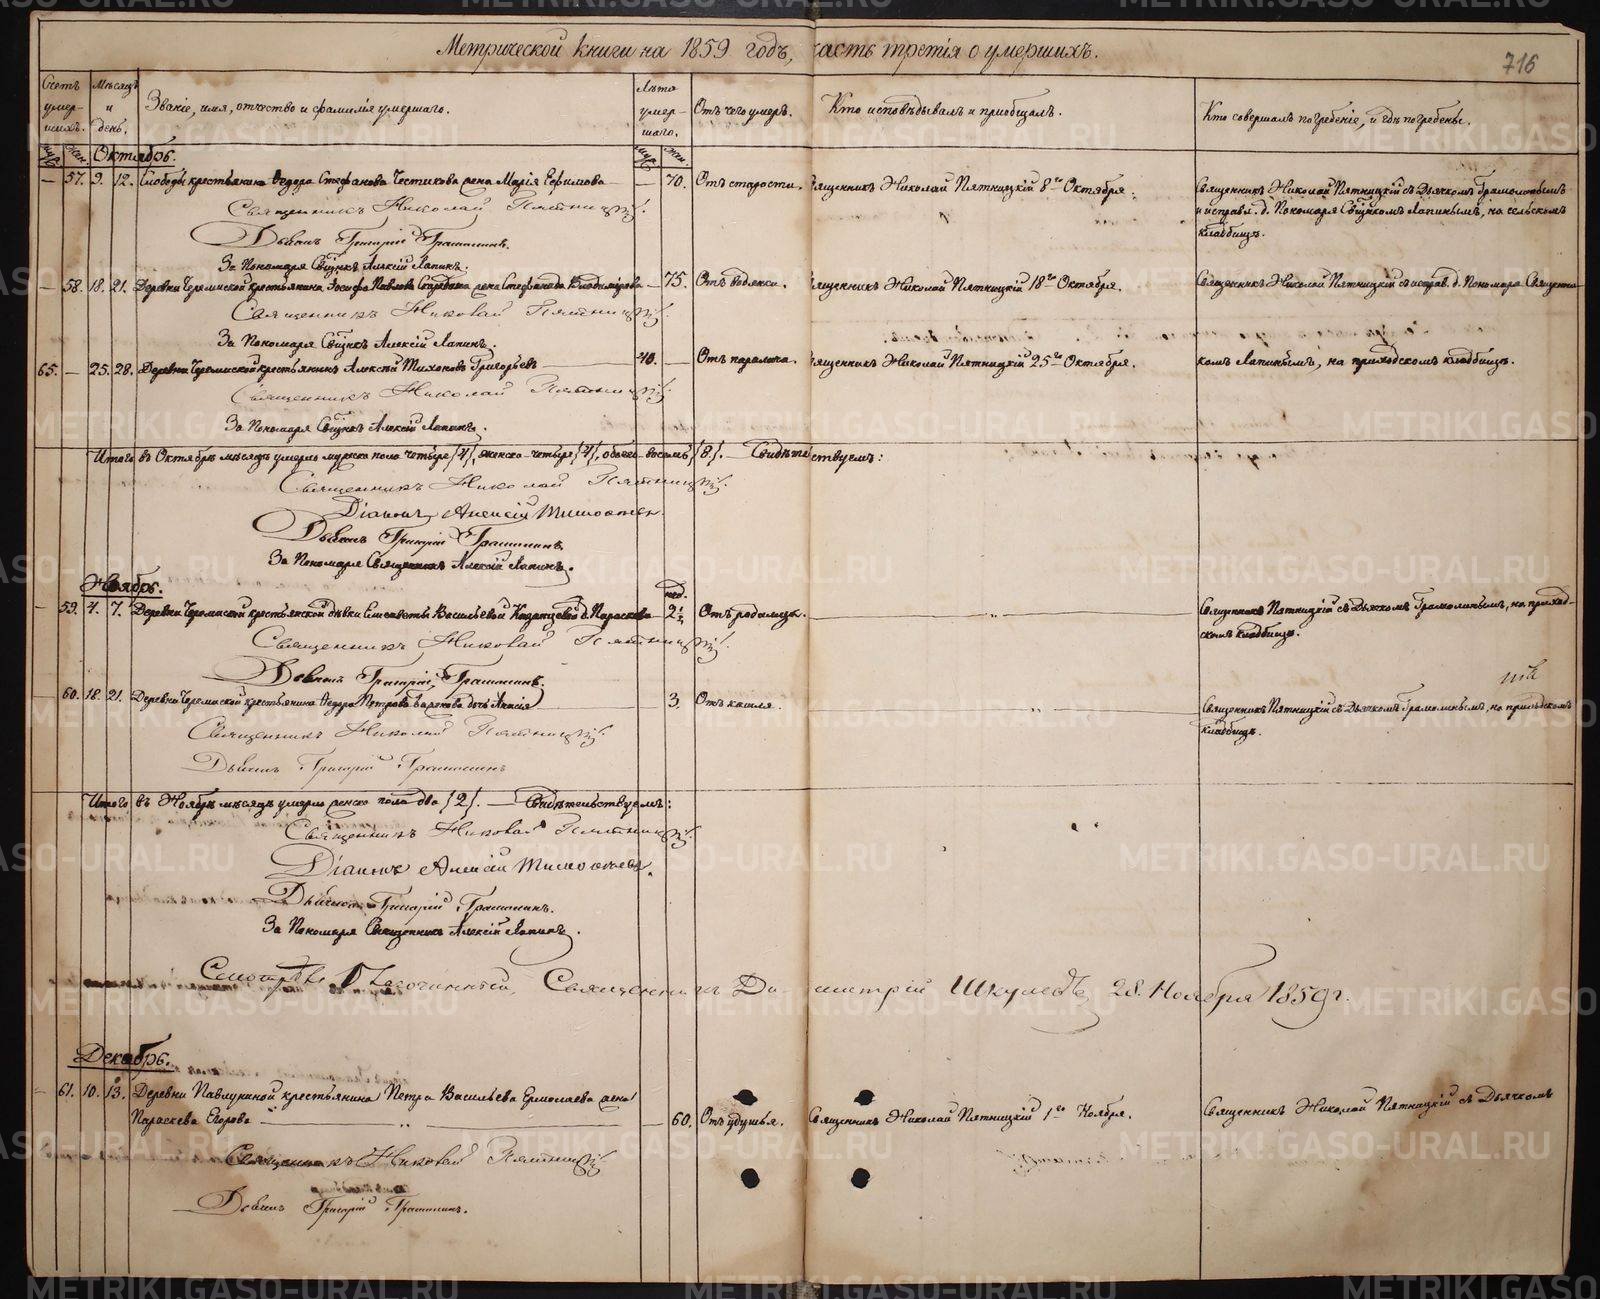 Метрической книги на 1859 годъ, часть третія о умершихъ.
716
Счетъ умерш-ихъ.
Мѣсяцъ и день.
Званіе, имя, отчество и фамилія умершаго.
Лѣта умер-шаго.
Отъ чего умеръ.
Кто исповѣдывалъ и пріобщалъ.
Кто совершалъ погребеніе, и гдѣ погребены.
муж. жен. Октябрь. муж. жен.
— 57. 9. 12. Слободы крестьянина Ѳедора Стефанова жена Марія Ефимова — 70. Отъ старости. Священникъ Николай Пятницкій 8го Октября. Священникъ Николай Пятницкій съ Дьячкомъ Грамолинымъ
и исправл. д. Пономаря Свщнкомъ Лапинымъ, на сельскомъ
кладбищѣ.
Священникъ Николай Пятницкій.
Дьячекъ Григорій Грамолинъ.
За Пономаря Свщнкъ Алексій Лапинъ.
— 58. 18. 21. Деревни Черемиской крестьянина Іосифа Павлова жена Стефанида Владимірова — 75. Отъ водянки. Священникъ Николай Пятницкій 18го Октября. Священникъ Николай Пятницкій съ исправ. д. Пономаря Священни-
Священникъ Николай Пятницкій.
За Пономаря Свщнкъ Алексій Лапинъ.
65. — 25. 28. Деревни Черемиской крестьянинъ Алексѣй Тихоновъ Григорьевъ 40. — Отъ паралича. Священникъ Николай Пятницкій 25го Октября. комъ Лапинымъ, на приходскомъ кладбищѣ.
Священникъ Николай Пятницкій.
За Пономаря Свщнкъ Алексій Лапинъ.
Итого въ Октябрѣ мѣсяцѣ умерло мужска пола четыре /4/, женска — четыре /4/, обоего — восемь /8/. — Свидѣтельствуемъ:
Священникъ Николай Пятницкій.
Діаконъ Алексій
Дьячекъ Григорій Грамолинъ.
За Пономаря Священникъ Алексій Лапинъ.
Ноябрь. нед.
— 59. 4. 7. Деревни Черемиской крестьянской дѣвки Елисаветы Васильевой Казанцевой д. Параскева — 2½ Отъ родимца. — „ — Священникъ Пятницкій съ Дьячкомъ Грамолинымъ, на приход-
скомъ кладбищѣ.
Священникъ Николай Пятницкій.
Дьячекъ Григорій Грамолинъ.
— 60. 18. 21. Деревни Черемиской крестьянина Ѳедора Петрова дочь Анисія 3. Отъ кашля. — „ — Священникъ Пятницкій съ Дьячкомъ Грамолинымъ, на приходскомъ
кладбищѣ.
Священникъ Николай Пятницкій.
Дьячекъ Григорій Грамолинъ
Итого въ Ноябрѣ мѣсяцѣ умерло женска пола два /2/. — Свидѣтельствуемъ:
Священникъ Николай Пятницкій.
Діаконъ Алексій
Дьячекъ Григорій Грамолинъ.
За Пономаря Священникъ Алексій Лапинъ.
Смотрѣлъ Благочинный, Священникъ Димитрій 28. Ноября 1859 г.
Декабрь.
— 61. 10. 13. Деревни Павлушиной крестьянина Петра Васильева Ермолаева жена
Параскева Егорова — „ — 60. Отъ удушья. Священникъ Николай Пятницкій 1го Ноября. Священникъ Николай Пятницкій съ Дьячкомъ
Священникъ Николай Пятницкій
Дьячекъ Григорій Грамолинъ.
METRIKI.GASO-URAL.RU